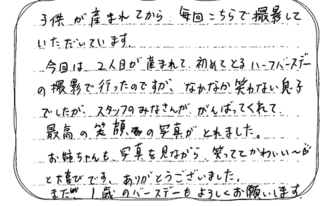 子供が産まれてから、毎回こちらで撮影して
いただいています。
今回は、2人目が産まれて、初めてとるハーフバースデー
の撮影で行ったのですが、なかなか笑わない息子
でしたが、スタッフのみなさんが、がんばってくれて、
最高の笑顔の写真がとれました。
お姉ちゃんも、写真を見ながら、笑っててかわいい〜
と大喜びです。ありがとうございました。
また、1歳のバースデーもよろしくお願いします。